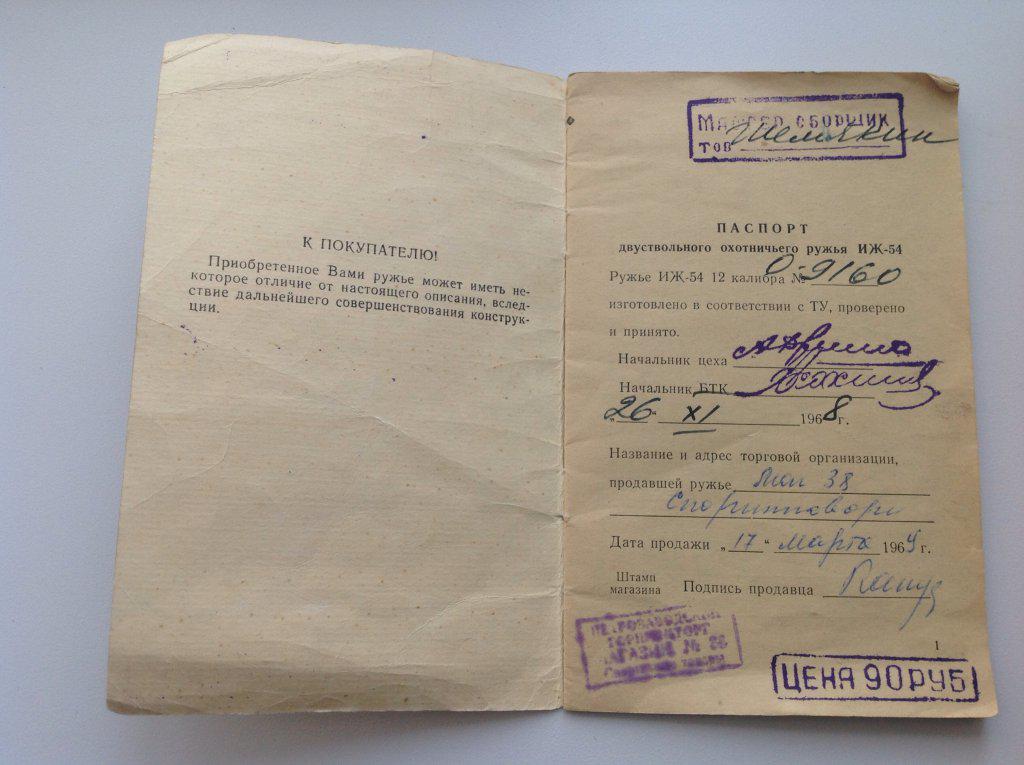 К ПОКУПАТЕЛЮ!
Приобретенное Вами ружье может иметь не-
которое отличие от настоящего описания, вслед-
ствие дальнейшего совершенствования конструк-
ции.
Мастер сборщик
тов Шемякин
ПАСПОРТ
двуствольного охотничьего ружья ИЖ-54
Ружье ИЖ-54 12 калибра № О-9160
изготовлено в соответствии с ТУ, проверено
и принято.
Начальник цеха
Начальник БТК
„26" XI 1968 г.
Название и адрес торговой организации,
продавшей ружье 38
Спорттовары
Дата продажи „17" марта 1969 г.
Штамп
магазина
Подпись продавца
ПЕТРОЗАВОДСКИЙ
ГОРПРОМТОРГ
МАГАЗИН № 38
Спортивные товары
1
ЦЕНА 90 РУБ